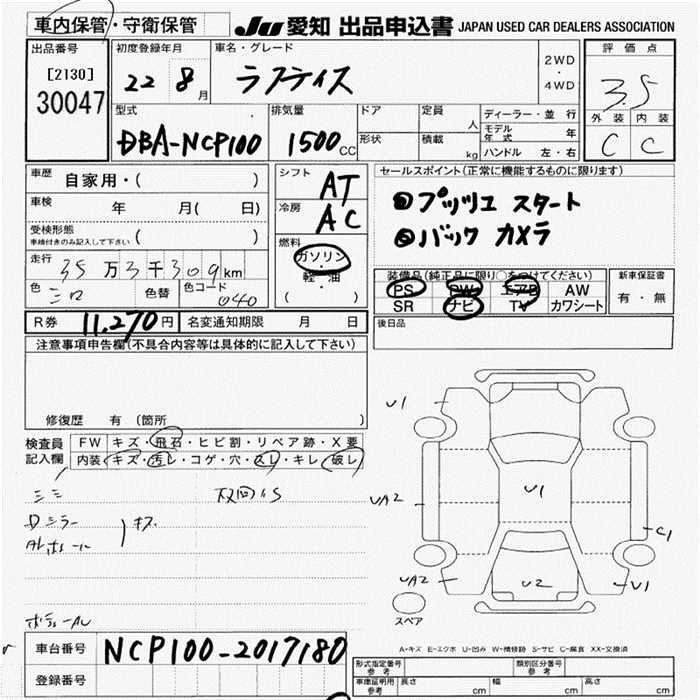 車内保管・守衛保管
JU 愛知 出品申込書 JAPAN USED CAR DEALERS ASSOCIATION
出品番号
[2130]
30047
初度登録年月
22 8月
車名・グレード
ラクティス
2WD
・
4WD
評価点
3.5
外装 内装
C C
型式
DBA-NCP100
排気量
1500 CC
ドア
形状
定員 人
積載 kg
ディーラー・並行
モデル年式 年
ハンドル 左・右
車歴 自家用・( )
車検 年 月(日)
受検形態
車検付きのみ記入して下さい ( )
走行 35万3千309km
色 シロ 色替 色コード 040
シフト AT
冷房 AC
燃料
ガソリン・
軽・油
( )
セールスポイント(正常に機能するものに限ります)
プッシュ スタート
バック カメラ
装備品(純正品に限り○をつけてください)
PS PW エアB AW
SR ナビ TV カワシート
新車保証書
有・無
後日品
R券 11,270円 名変通知期限 月 日
注意事項申告欄(不具合内容等は具体的に記入して下さい)
修復歴 有 (箇所 )
検査員
記入欄
FW キズ・飛石・ヒビ割・リペア跡・X要
内装 キズ・汚レ・コゲ・穴・スレ・キレ・破レ
Dミラー
ALホイール
キズ
U1
UA2
U1
C1
UA2
U2
U1
スペア
A-キズ E-エクボ U-凹み W-補修跡 S-サビ C-腐食 XX-交換済
車台番号 NCP100-2017180
登録番号
形式指定番号
参考
類別区分番号
参考
車庫証明用
参考
長さ cm 幅 cm 高さ cm